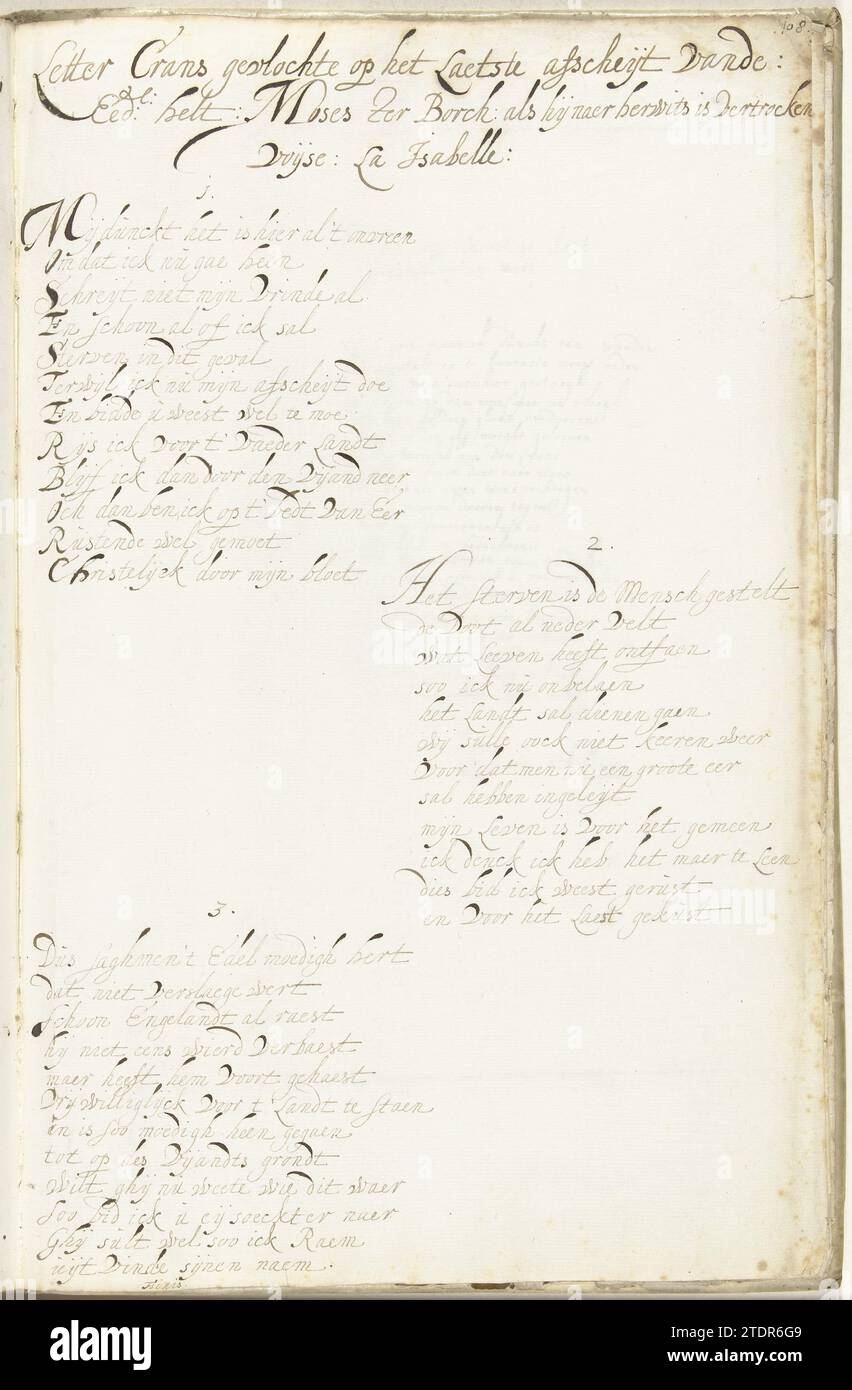 108.
Letter Crans gevlochte op het Laetste afscheijt vande:
Eed.el: helt: Moses Ter Borch: als hij naer herwits is vertrocken
Voijse: La Isabelle:
1.
Mij dunckt het is hier al 't onvreen
Om dat ick nu gae heen
Schreijt niet mijn Vrinde al
En schoon al of ick sal
Sterven in dit geval
Terwijl ick nu mijn afscheijt doe
En bidde u weest wel te moe
Rijs ick voor t' Vaeder Landt
Blijf ick dan door den Vijand neer
Och dan ben ick op t' bedt van Eer
Rustende wel gemoet
Christelijck door mijn bloet
2.
Het sterven is de Mensch gestelt
de Doot al neder velt
wat Leeven heeft ontfaen
soo ick nu onbelaen
het Landt sal dienen gaen
wij sulle oock niet keeren weer
Voor dat men nu een groote eer
sal hebben ingeleijt
mijn Leven is voor het gemeen
ick denck ick heb het maer te Leen
dies bid ick weest gerust
en voor het Laest gekust
3.
Dus saghmen 't Edel moedigh hert
dat niet verslaege wert
schoon Engelandt al raest
hij niet eens wierd verbaest
maer heeft hem voort gehaest
Vrijwilliglijck voor t' Landt te staen
en is soo moedigh heen gegaen
tot op des Vijandts grondt
wilt ghij nu weete wie dit waer
soo bid ick u eij soeckt er naer
Ghij sult wel soo ick Raem
uijt vinde sijnen naem.
Finis.
alamy
Image ID: 2TDR6G9
www.alamy.com